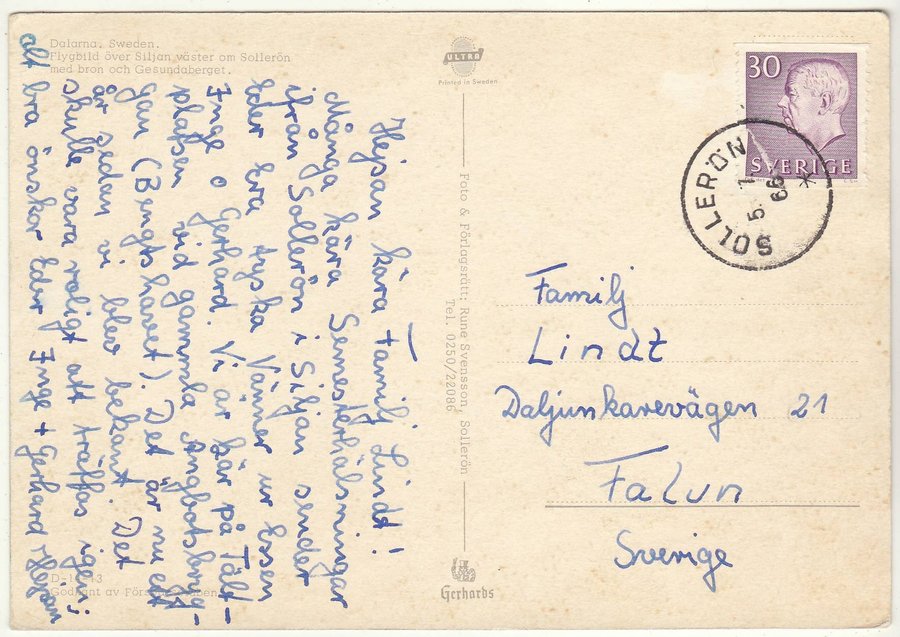 Dalarna, Sweden.
Flygbild över Siljan väster om Sollerön
med bron och Gesundaberget.
ULTRA
Printed in Sweden
30
SVERIGE
SOLLERÖN
1
5
66
Hejsan kära Familj Lindt!
Många kära Semesterhälsningar
ifrån Sollerön i Siljan sendet
Eder Era tyska Vänner ur Essen
Inge o Gerhard. Vi är här på Tält-
platsen vid gammla Ångbotsbryg-
gan (Bengtshavet). Det är nu ett
år sedan vi blev bekant. Det
skulle vara roligt att träffas igen;
alt bra önskor Eder Inge + Gerhard
Foto & Förlagsrätt: Rune Svensson, Sollerön
Tel. 0250/22086
Familj
Lindt
Daljunkarevägen 21
Falun
Sverige
Gerhards
Godkänt av